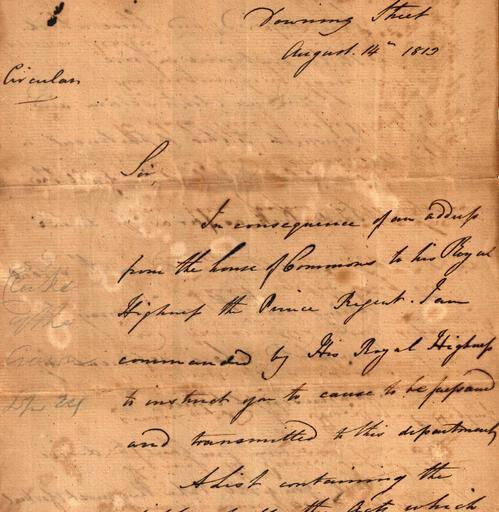 Downing Street
August. 14th 1812
Circular
Sir,
In consequence of an address
from the house of Commons to his Royal
Highness the Prince Regent. I am
commanded by His Royal Highness
to instruct you to cause to be prepared
and transmitted to this department
A List containing the
of all the Acts which